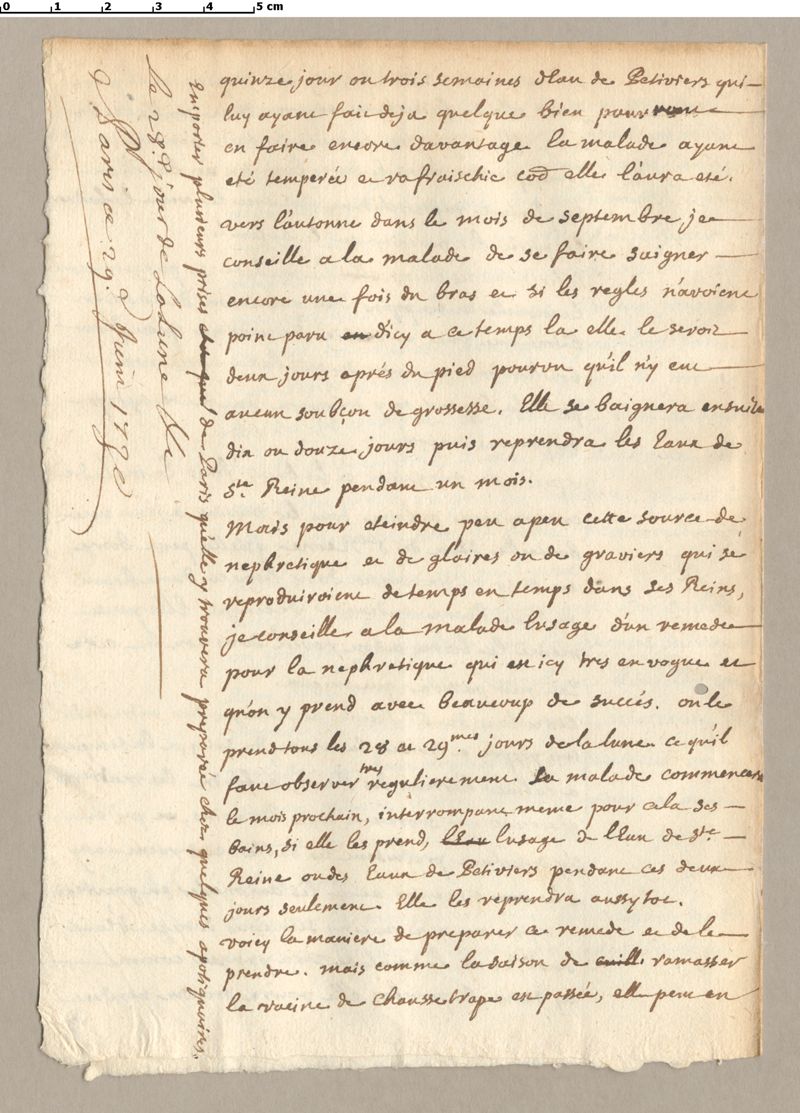 0 1 2 3 4 5 cm
quinze jour ou trois semaines d'Eau de Petiviers qui
luy ayant fait deja quelque bien pourront
en faire encore davantage la malade ayant
eté temperée et rafraischie coe elle l'aura eté.
vers l'autonne dans le mois de septembre je
conseille a la malade de se faire saigner
encore une fois du bras et si les regles n'avoient
point paru en d'icy a ce temps la elle le seroit
deux jours aprés du pied pourvu qu'il n'y eut
aucun soubçon de grossesse. Elle se baignera ensuite
dix ou douze jours puis reprendra les Eaux de
Ste. Reine pendant un mois.
Mais pour eteindre peu a peu cette source de
nephretique et de glaires ou de graviers qui se
reproduiroient de temps en temps dans ses Reins,
je conseille a la malade l'usage d'un remede
pour la nephretique qui est icy tres en vogue et
qu'on y prend avec beaucoup de succés. on le
prend tous les 28 et 29mes jours de la lune ce qu'il
faut observer tres regulierement la malade commencera
le mois prochain, interrompant meme pour cela ses
bains, si elle les prend, l'Eau l'usage de l'Eau de Ste
Reine ou des Eaux de Petiviers pendant ces deux
jours seulement. Elle les reprendra aussytot.
voicy la maniere de preparer ce remede et de le
prendre. mais comme la saison de cuill ramasser
la racine de Chausse trape est passée, elle peut en
emporter plusieurs prises de Paris qu'elle y trouvera preparée chez quelques apotiquaires.
le 28e jour de la lune
a Paris ce 29e Juin 1730